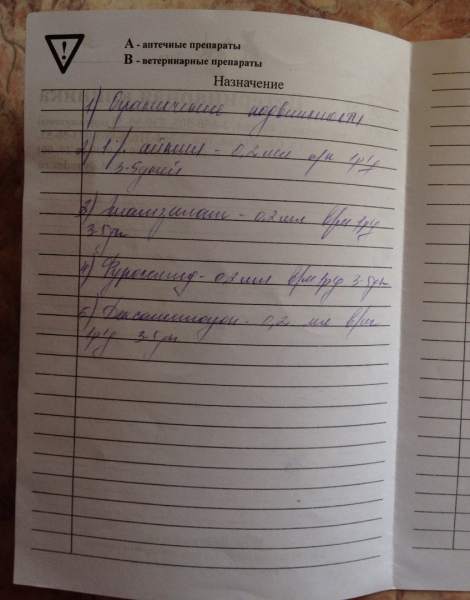 А - аптечные препараты
В - ветеринарные препараты
Назначение
1) Ограничение подвижности
2) 1% - 0,2 мл 1 р/д
3-5 дней
3) - 0,2 мл в/м 1 р/д
3-5 дн
4) Фуросемид - 0,2 мл в/м 1 р/д 3-5 дн
5) Дексаметазон - 0,2 мл в/м
1 р/д 3-5 дн